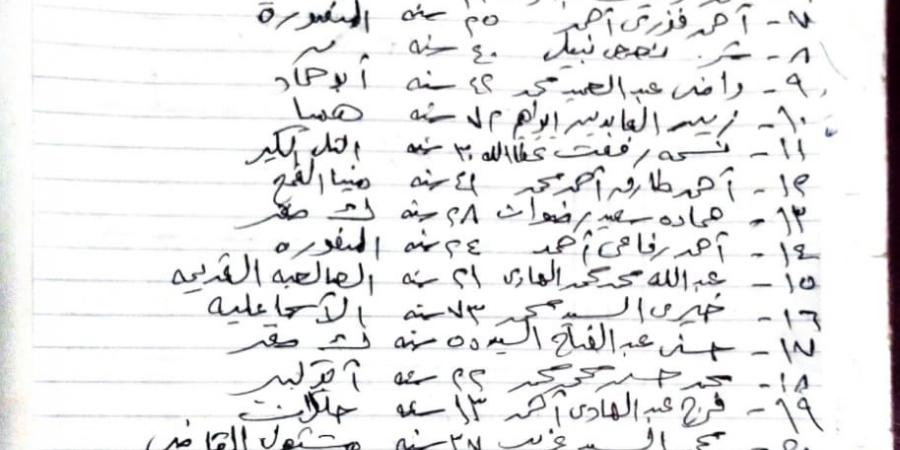 ٧- أحمد فوزى أحمد ٢٥ سنه المنصورة
٨- نبيل ٤٠ سنه
٩- راضى عبد الحميد محمد ٤٢ سنه أبو حماد
١٠- زينب العابدين ابراهم ٧٢ سنه ههيا
١١- نسمه رفقت عطا الله ٣٠ سنه التل الكبير
١٢- أحمد طارق أحمد محمد ٤١ سنه منيا القمح
١٣- حماده سعيد رضوان ٢٨ سنه ك صقر
١٤- أحمد رفاعى أحمد ٢٤ سنه المنصوره
١٥- عبد الله محمد محمد الهادى ٢١ سنه الصالحيه القديمه
١٦- خيرى السيد محمد ٧٣ سنه الأسماعليه
١٧- حسنى عبد الفتاح السيد ٥٥ سنه ك صقر
١٨- محمد حسن محمد محمد ٢٢ سنه
١٩- فرج عبد الهادى أحمد ١٣ سنه
٢٠- السيد ٢٧ سنه مشتول القاضى